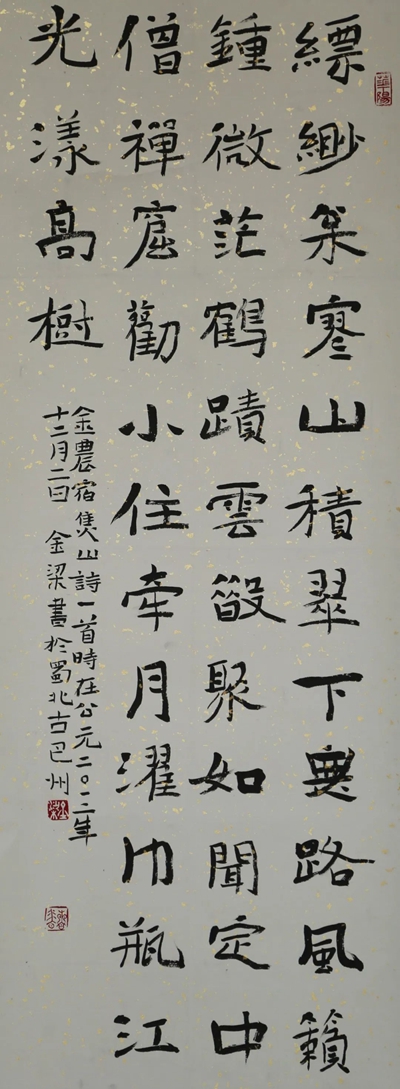 縹緲寥山積翠下無路風籟
鍾微茫鶴蹟雲散聚如聞定中
僧禪窟勸小住牽月濯巾瓶江
光漾高樹
金農宿焦山詩一首時在公元二〇一二年
十二月二日 金梁書於蜀北古巴州